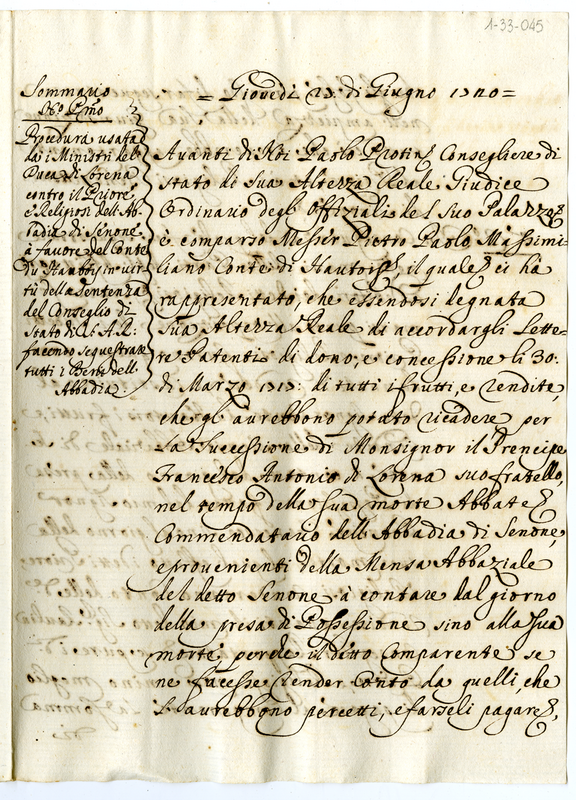 1-33-045
Sommario
No. Pmo
Procedura usata
da i Ministri del
Duca di Lorena
contro il Priore,
e Religiosi dell'Ab-
badia di Senone
à favore del Conte
in vir-
tù della sentenza
del Conseglio di
Stato di S: A: R:
facendo sequestrare
tutti i Beni dell'
Abbadia.
= Giovedì 13 di Giugno =
Avanti di Noi Paolo Protin Consegliere di
Stato di Sua Altezza Reale Giudice
Ordinario degl'Offiziali del Suo Palazzo
è comparso Messer Pietro Paolo Massimi-
liano Conte di il quale ci hà
rappresentato, che essendosi degnata
Sua Altezza Reale di accordargli Lette-
re Patenti di dono, e concessione li 30:
di Marzo di tutti i frutti, e rendite,
che gl'aurebbono potuto ricadere per
la Successione di Monsignor il Prencipe
Francesco Antonio di Lorena suo fratello,
nel tempo della sua morte Abbate
Commendatario dell'Abbadia di Senone,
e provenienti della Mensa Abbaziale
del detto Senone à contare dal giorno
della presa di Possessione sino alla sua
morte, perche il ditto Comparente se
ne facesse render conto da quelli, che
l'aurebbono percetti, e farseli pagare,